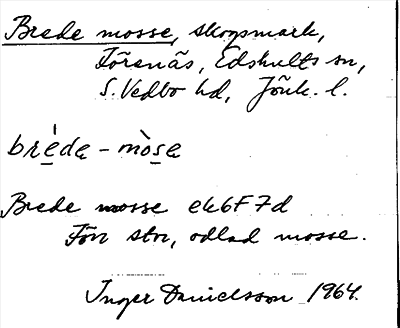 Brede mosse, skogsmark,
Förenäs, Edshults sn,
S. Vedbo hd, Jönk. l.
brèdɐ - mòsɐ
Brede mosse ek6F7d
Fön stn, odlad mosse.
Inger Danielsson 1964.